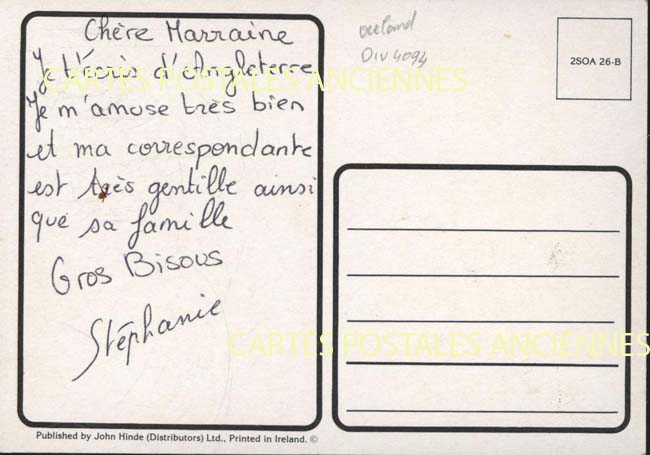 Chère Marraine
Je t'écris d'Angleterre
Je m'amuse très bien
et ma correspondante
est très gentille ainsi
que sa famille
Gros Bisous
Stéphanie
Published by John Hinde (Distributors) Ltd., Printed in Ireland. ©
DIV4094
2SOA 26-B
CARTES POSTALES ANCIENNES
CARTES POSTALES ANCIENNES